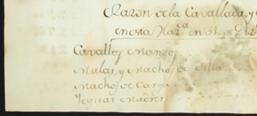 Razon de la Cavallada, y
en esta Haz.ᵃ en 31, de D
Cavallos Mansos
Mulas, y Machos de Silla
Machos de Carga
Yeguas Man